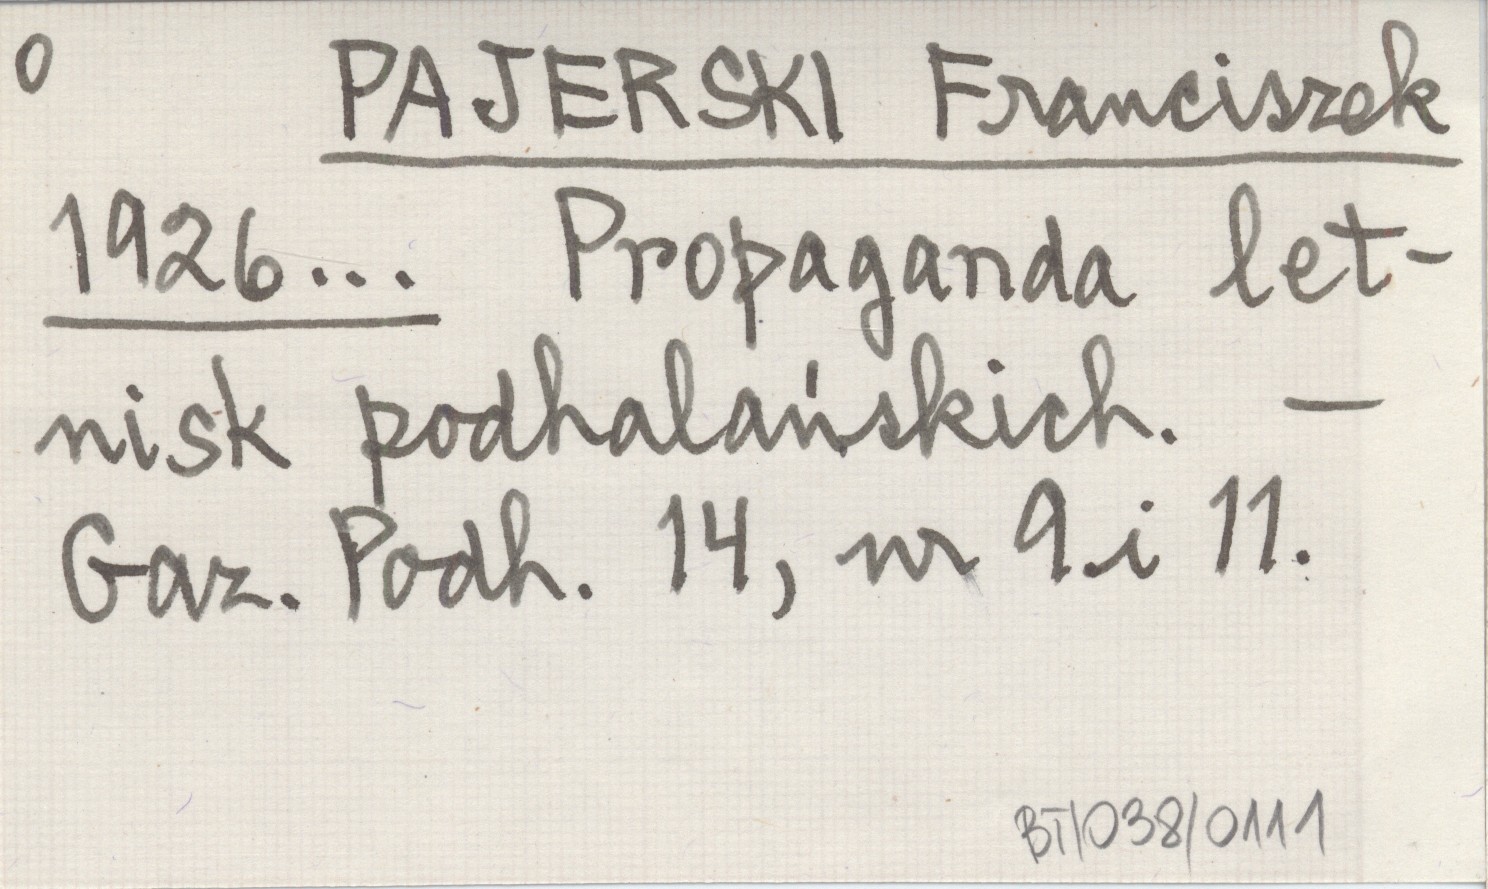 0 PAJERSKI Franciszek
1926... Propaganda let-
nisk podhalańskich. —
Gaz. Podh. 14, nr 9 i 11.
BT/038/0111